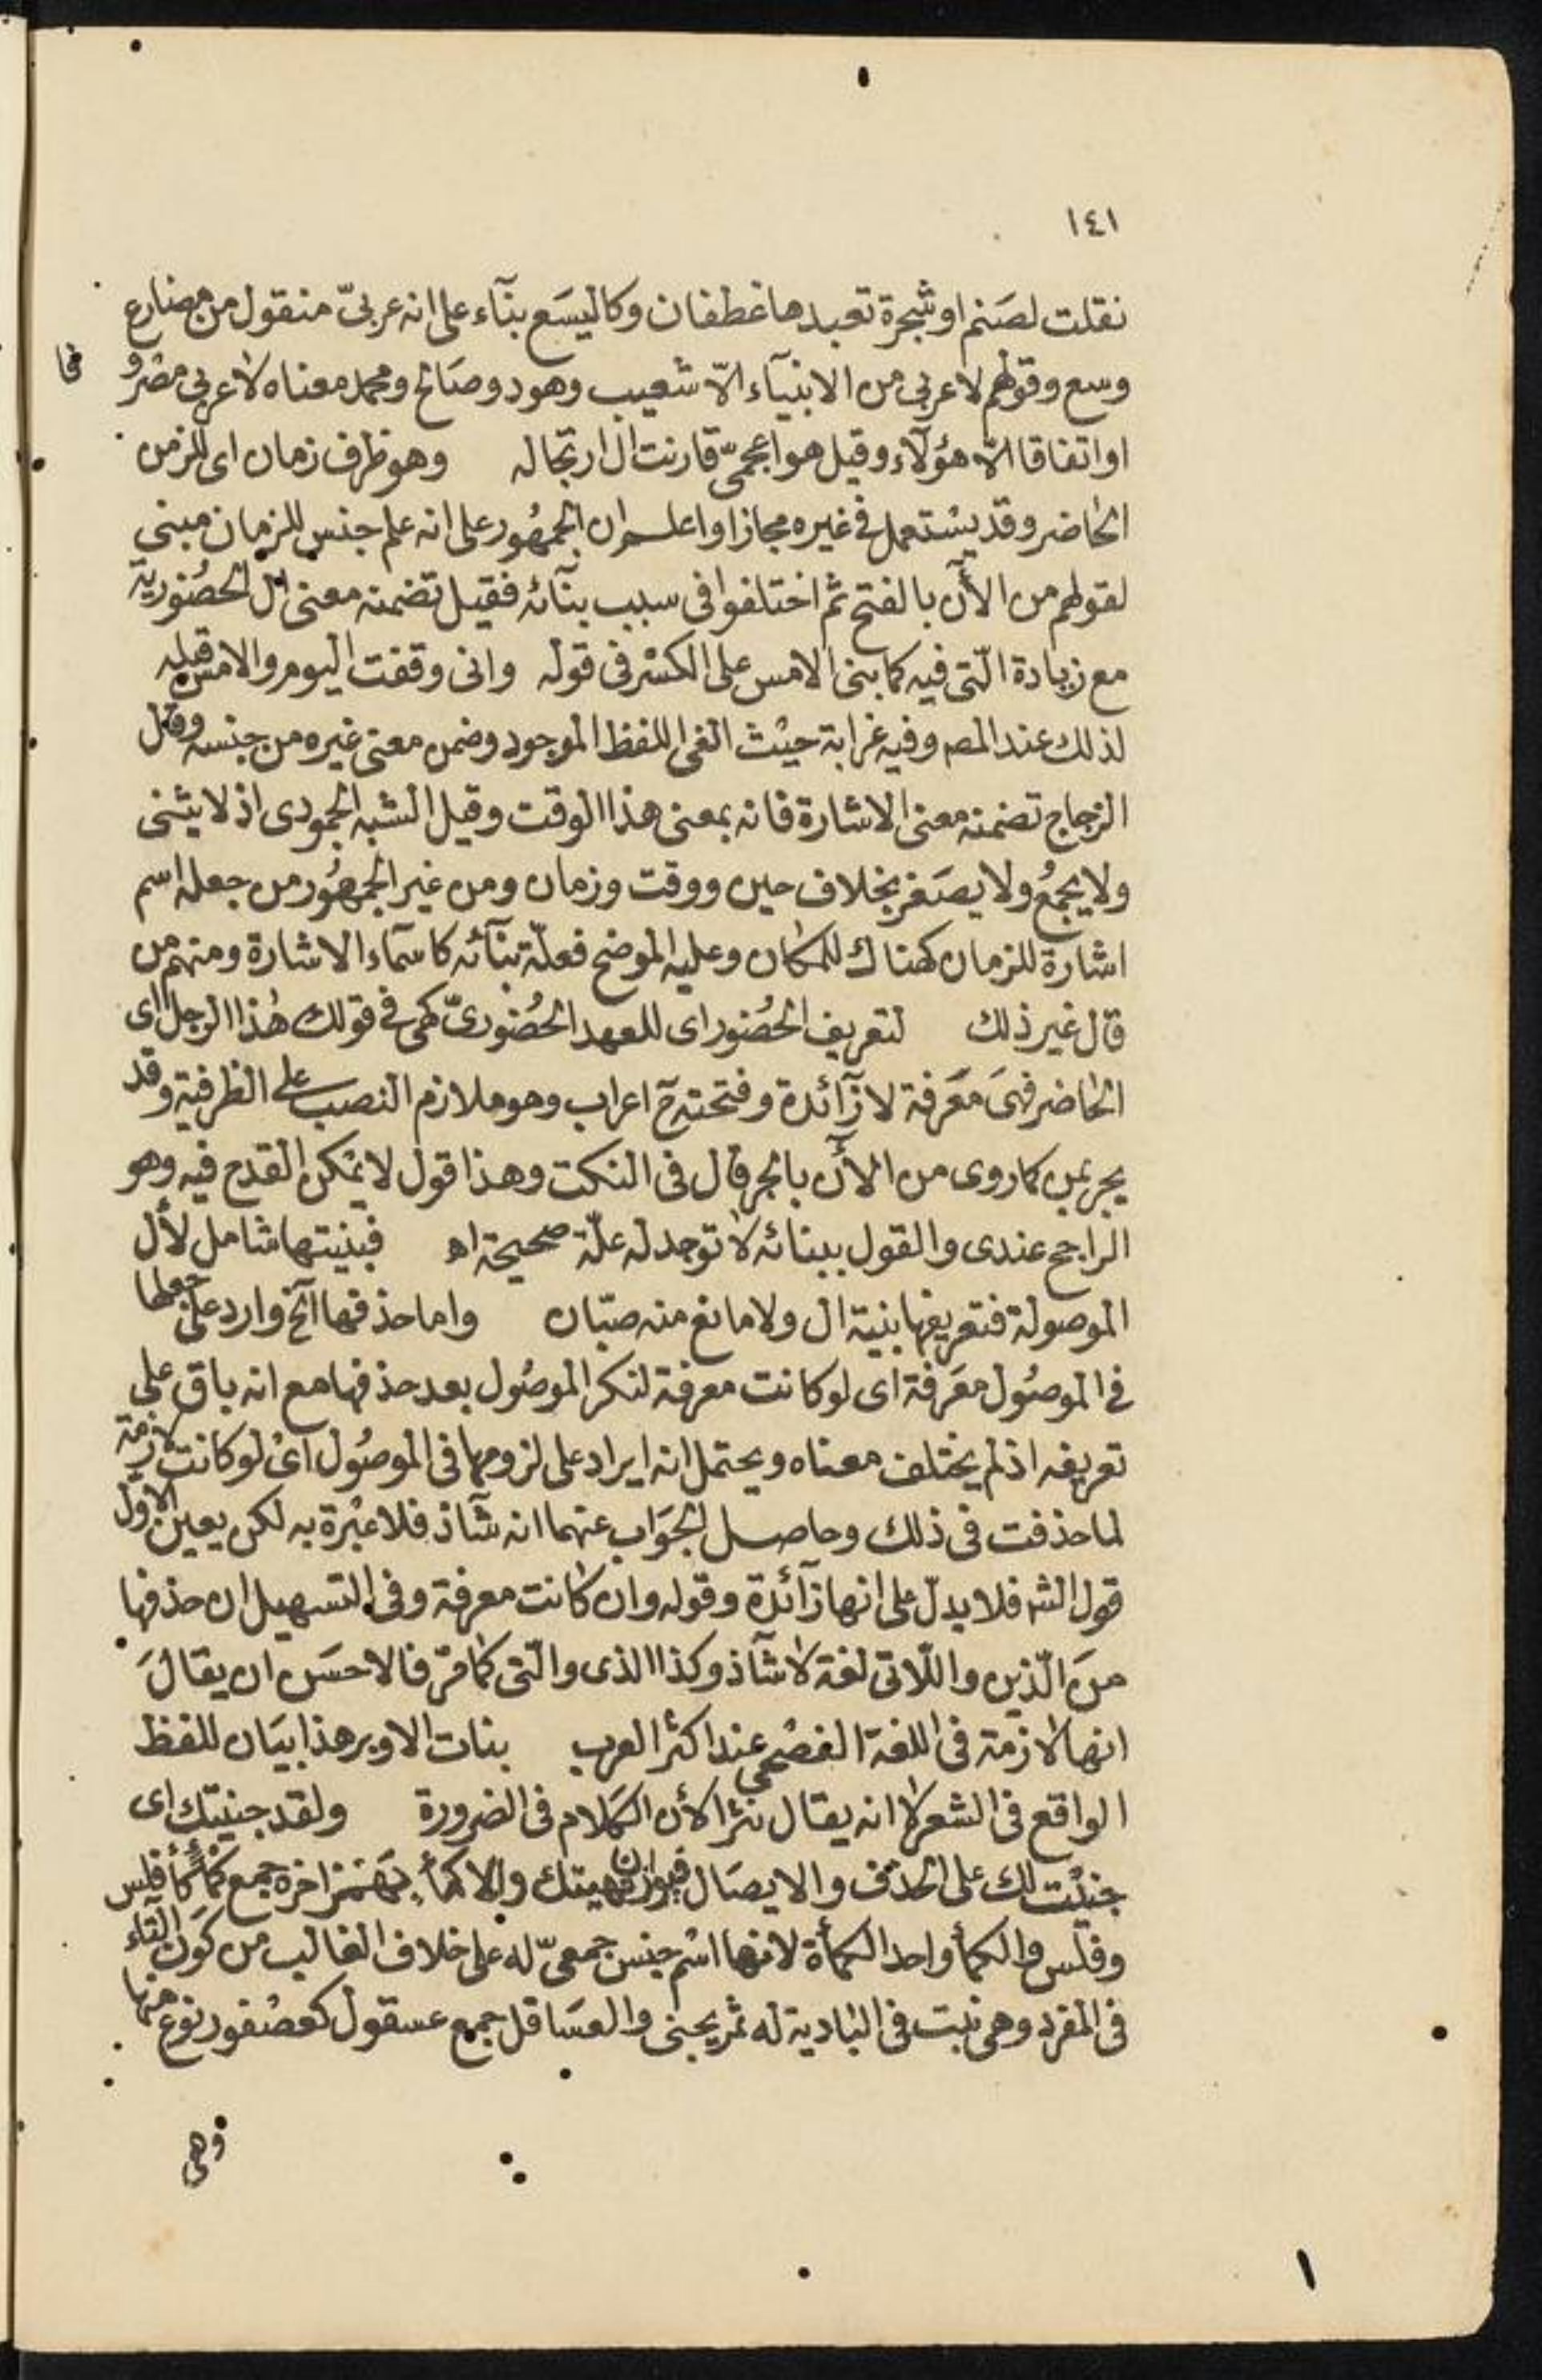 ١٤١
نقلت لصنم او شجرة تعبدها غطفان وكاليسَع بنآء على انه عربىّ منقول من مضارع
وسع وقولهم لا عربى من الانبيآء الّا شعيب وهود وصَالح ومحمد معناه لا عربى مصْروفا
او اتفاقا الّا هؤلآء وقيل هو اعجمىّ قارنت ال ارتجاله وهو ظرف زمان اى للزمن
الحاضر وقد يسْتعمل فى غيره مجازا واعلم ان الجمهُور على انه علم جنس للزمان مبنى
لقولهم من الآن بالفتح ثم اختلفوا فى سبب بنآئه فقيل تضمنه معنى ال الحضُورية
مع زيادة الّتى فيه كما بنى الامس على الكسْر فى قوله وانى وقفت اليوم والامس قبله
لذلك عند المصـ وفيه غرابة حيْث الغى اللفظ الموجود وضمن معنى غيره من جنسه وقال
الزجاج تضمنه معنى الاشارة فانه بمعنى هذا الوقت وقيل الشبه الجمودى اذ لا يثنى
ولا يجمعُ ولا يصَغر بخلاف حين ووقت وزمان ومن غير الجمهُور من جعله اسم
اشارة للزمان كهناك للمكان وعليه الموضح فعلّة بنآئه كاسمآء الاشارة ومنهم من
قال غير ذلك لتعريف الحضُور اى للعهد الحضُورىّ كهى فى قولك هٰذا الرجل اى
الحاضر فهىَ معَرفة لا زآئدة وفتحته ح اعراب وهو ملازم النصب على الظرفية وقد
يجر بمن كما روى من الآن بالجر قال فى النكت وهذا قول لا يمْكن القدح فيه وهو
الراجح عندى والقول ببنائه لا توجد له علّة صحيحة اه فبنيتها شامل لأل
الموصولة فتعريفها بنية ال ولا مانع منه صبّان واما حذفها آلخ وارد على جعلها
فى الموصُول معَرفة اى لو كانت معرفة لنكر الموصُول بعد حذفها مع انه باق على
تعريفه اذ لم يختلف معناه ويحتمل انه ايراد على لزومها فى الموصُول اىْ لو كانت لازمة
لما حذفت فى ذلك وحاصل الجوَاب عنهما انه شآذ فلا عبْرة به لكن يعين الاول
قول الشـ فلا يدلّ على انها زآئدة وقوله وان كانت معرفة وفى التسهيل ان حذفها
منَ الّذين واللّاتى لغة لا شآذ وكذا الذى والّتى كما مرّ فالاحسَن ان يقالَ
انها لازمة فى اللغة الفصْحى عند اكثر العرب بنات الاوبر هذا بيَان للفظ
الواقع فى الشعر لا انه يقال نثرا لأن الكلام فى الضرورة ولقد جنيتك اى
جنيْت لك على الحذف والايصَال فيوازن نهيتك والاكمأ بهَمْز اخره جمع كمأ كأفلس
وفلس والكمأ واحد الكمأة لانها اسْم جنس جمعىّ له على خلاف الغالب من كَون التاء
فى المفرد وهى نبت فى البَادية له ثمر يجنى والعسَاقل جمع عسقول كعصْفور نوع منها
وهى
١